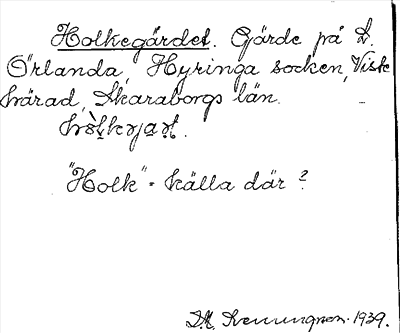 Holkegärdet. Gärde på L.
Örlanda, Hyringa socken, Viste
härad, Skaraborgs län.
"Holk" - källa där?
1939.